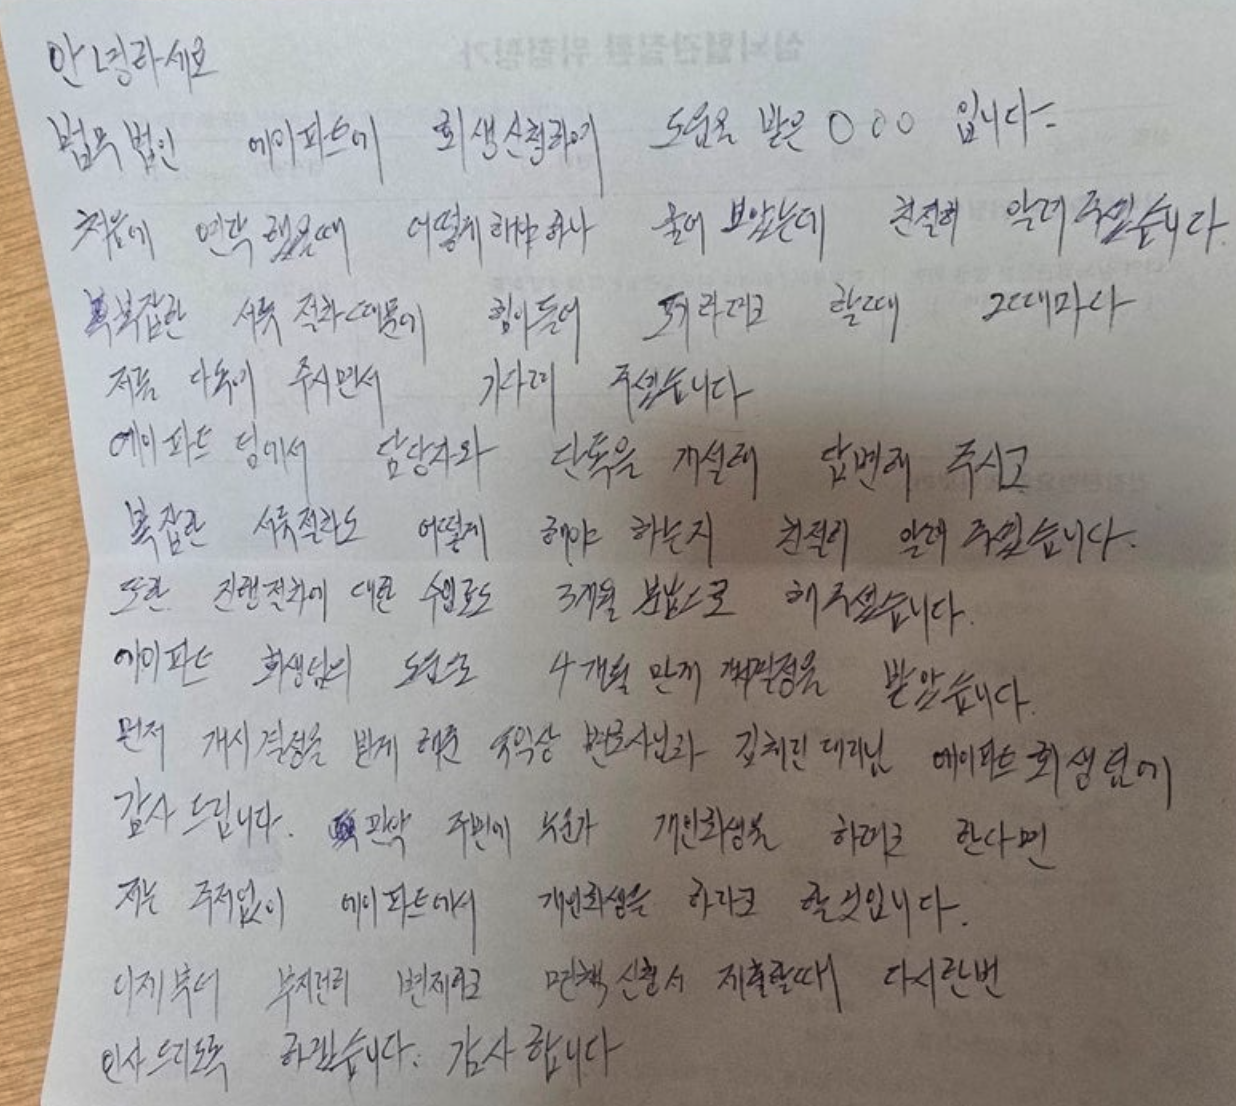 안녕하세요
법무법인 에이파트에 회생신청하여 도움을 받은 ○○○ 입니다.
처음에 연락 했을때 어떻게 해야 하나 물어 보았는데 친절히 알려 주었습니다.
복잡한 서류 절차 때문에 힘이들어 포기하려고 할때 그때마다
저를 다독여 주시면서 기다려 주셨습니다
에이파트 팀에서 담당자와 단톡을 개설해 답변해 주시고
복잡한 서류절차도 어떻게 해야 하는지 친절히 알려 주었습니다.
또한 진행절차에 대한 수임료도 3개월 분납으로 해 주셨습니다.
에이파트 회생팀의 도움으로 4개월 만에 개시결정을 받았습니다.
먼저 개시결정을 받게 해준 변호사님과 김혜린 대리님 에이파트 회생팀에
감사 드립니다. 만약 주변에 누군가 개인회생을 하려고 한다면
저는 주저없이 에이파트에서 개인회생을 하라고 할것입니다.
이제부터 부지런히 변제하고 면책 신청서 제출할때 다시한번
인사 드리도록 하겠습니다. 감사합니다
심뇌혈관질환 위험평가